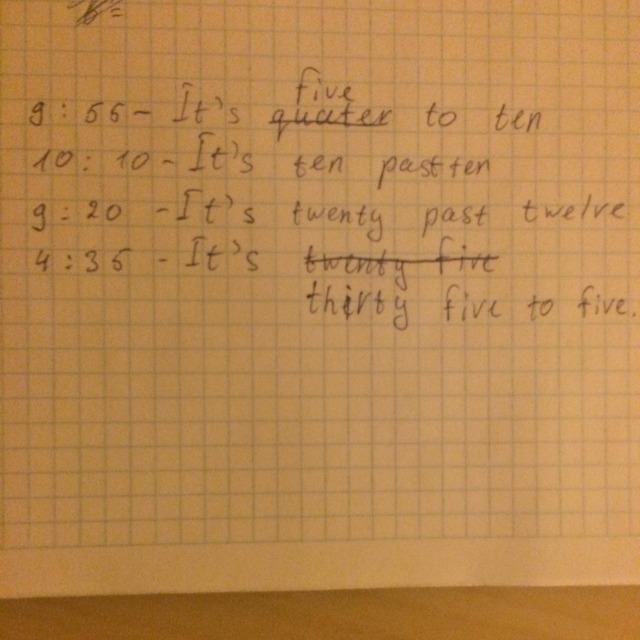 five
9:55 - It's quater to ten
10:10 - It's ten past ten
9:20 - It's twenty past twelve
4:35 - It's twenty five
thirty five to five.